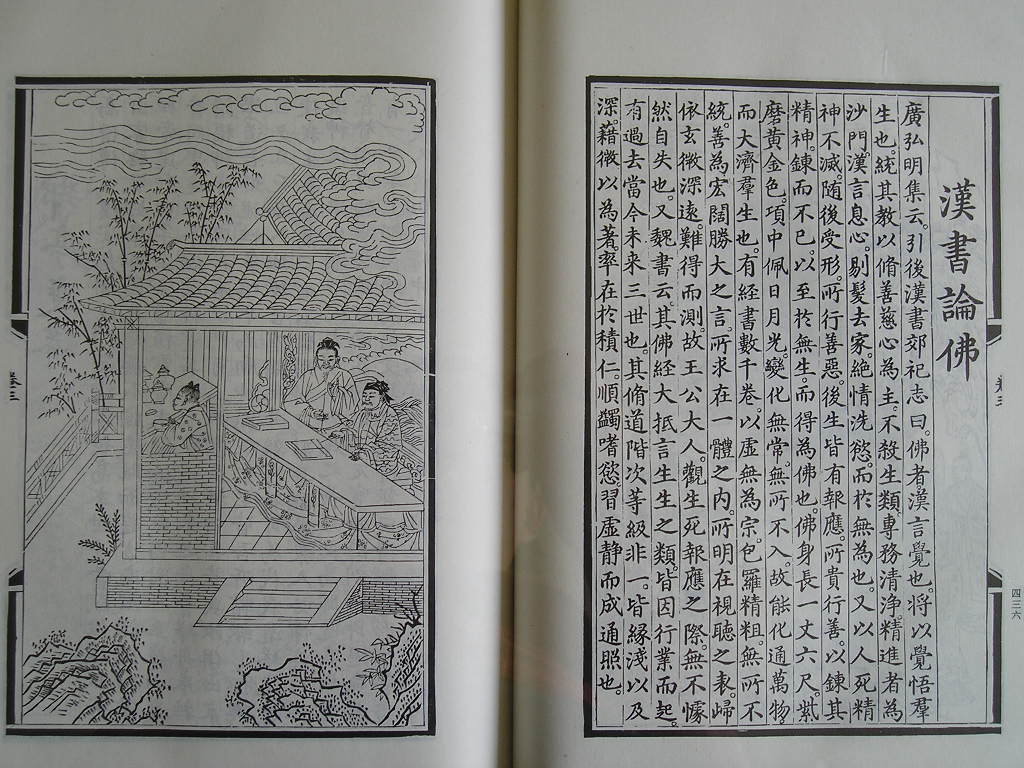 漢書論佛
廣弘明集云。引後漢書郊祀志曰。佛者漢言覺也。將以覺悟羣
生也。統其教以脩善慈心為主。不殺生類。專務清淨。精進者為
沙門。漢言息心。剔髮去家。絕情洗慾。而於無為也。又以人死精
神不滅。隨後受形。所行善惡。後生皆有報應。所貴行善。以鍊其
精神。鍊而不已。以至於無生。而得為佛也。佛身長一丈六尺。紫
磨黃金色。項中佩日月光。變化無常。無所不入。故能化通萬物
而大濟羣生也。有経書數千卷。以虛無為宗。包羅精粗。無所不
統。善為宏闊勝大之言。所求在一體之內。所明在視聽之表。歸
依玄微深遠。難得而測。故王公大人。觀生死報應之際。無不懅
然自失也。又魏書云。其佛経大抵言生生之類。皆因行業而起。
有過去當今未来三世也。其脩道階次等級非一。皆緣淺以及
深。藉微以為著。率在於積仁。順蠲嗜慾。習虛静而成通照也。
四三六
卷三